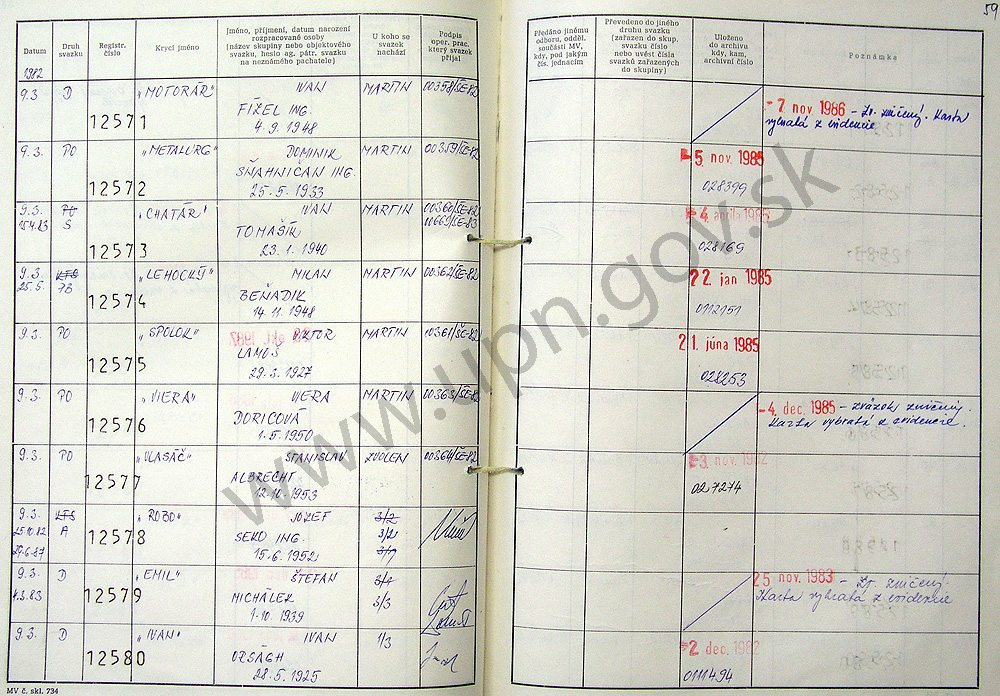 59
Datum
Druh svazku
Registr. číslo
Krycí jméno
Jméno, příjmení, datum narození rozpracované osoby (název skupiny nebo objektového svazku, heslo ag. pátr. svazku na neznámého pachatele)
U koho se svazek nachází
Podpis oper. prac. který svazek přijal
Předáno jinému odboru, odděl. součásti MV, kdy, pod jakým čís. jednacím
Převedeno do jiného druhu svazku (zařazen do skup. svazku číslo nebo uvést čísla svazků zařazených do skupiny)
Uloženo do archivu kdy, kam, archivní číslo
Poznámka
1982
9.3. D 12571 „MOTORÁR" IVAN MARTIN 00358/ŠE-82
FÍZEL ING.
4.9.1948
- 7. nov 1986 - Zv. zničený. Karta
vybratá z evidencie
9.3. PO 12572 „METALURG" DOMINIK MARTIN 00359/ŠE-82
SŇAHNIČAN ING.
25.5.1933
5 nov. 1985
028399
9.3. PO 12573 „CHATÁR" IVAN MARTIN 00360/ŠE-82
15.4.83 S 00669/ŠE-83
TOMAŠÍK
23.1.1940
4. apríla 1985
028169
9.3. KTS 12574 „LEHOCKÝ" MILAN MARTIN 00362/ŠE-82
25.5. PB
BEŇADIK
14.11.1948
22. jan 1985
0112151
9.3. PO 12575 „SPOLOK" VIKTOR MARTIN 00361/ŠE-82
LAMOŠ
29.3.1927
21. júna 1985
028253
9.3. PO 12576 „VIERA" VIERA MARTIN 00363/ŠE-82
DORICOVÁ
1.5.1950
- 4. dec. 1985 - zväzok zničený.
Karta vybratá z evidencie.
9.3. PO 12577 „VLASÁČ" STANISLAV ZVOLEN 00364/ŠE-82
ALBRECHT
12.10.1953
3. nov. 1982
027274
9.3. KTS 12578 „ROBO" JOZEF 3/2
25.10.82 A SEKO ING. 3/2
15.6.1952
9.3. D 12579 „EMIL" ŠTEFAN
MICHÁLEK 3/3
1.10.1939
25 nov. 1983 - Zv. zničený.
Karta vybratá z evidencie
9.3. D 12580 „IVAN" IVAN 1/3
ORSÁGH
28.5.1925
2. dec. 1982
0111494
MV č. skl. 734
www.upn.gov.sk